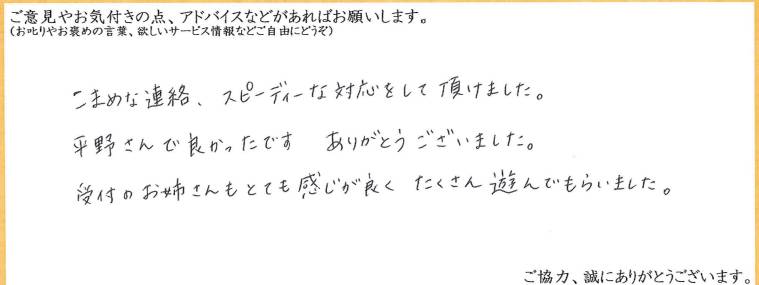 ご意見やお気付きの点、アドバイスなどがあればお願いします。
(お叱りやお褒めの言葉、欲しいサービス情報などご自由にどうぞ)
こまめな連絡、スピーディーな対応をして頂けました。
平野さんで良かったです ありがとうございました。
受付のお姉さんもとても感じが良く たくさん遊んでもらいました。
ご協力、誠にありがとうございます。